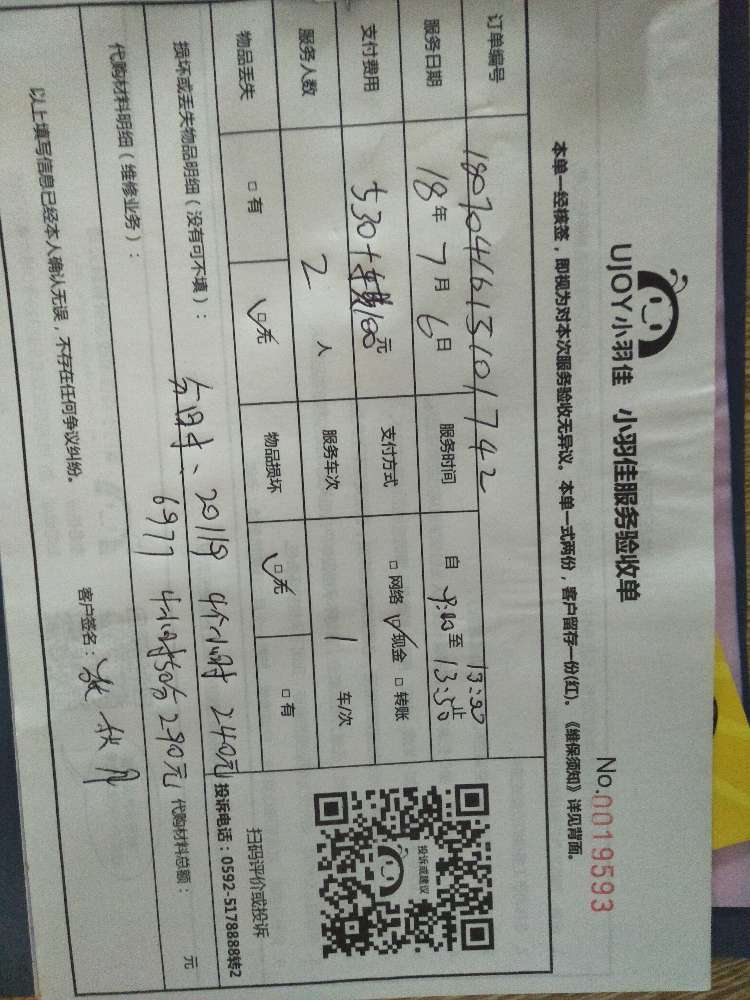 UJOY小羽佳 小羽佳服务验收单
No.0019593
本单一经核签，即视为对本次服务验收无异议。本单一式两份，客户留存一份(红)。《维保须知》详见背面。
订单编号 180704161310101742
服务日期 18年7月6日 服务时间 自 9:00至 13:30 13:50止
支付费用 530+车费100元 支付方式 □网络 ☑现金 □转账
服务人数 2人 服务车次 1 车/次
物品丢失 □有 ☑无 物品损坏 ☑无 □有
投诉或建议
扫码评价或投诉
投诉电话：0592-5178888转2
损坏或丢失物品明细（没有可不填）：
20119 4个小时 240元
6977 4小时50分 290元
代购材料明细（维修业务）：
代购材料总额： 元
以上填写信息已经本人确认无误，不存在任何争议纠纷。
客户签名：